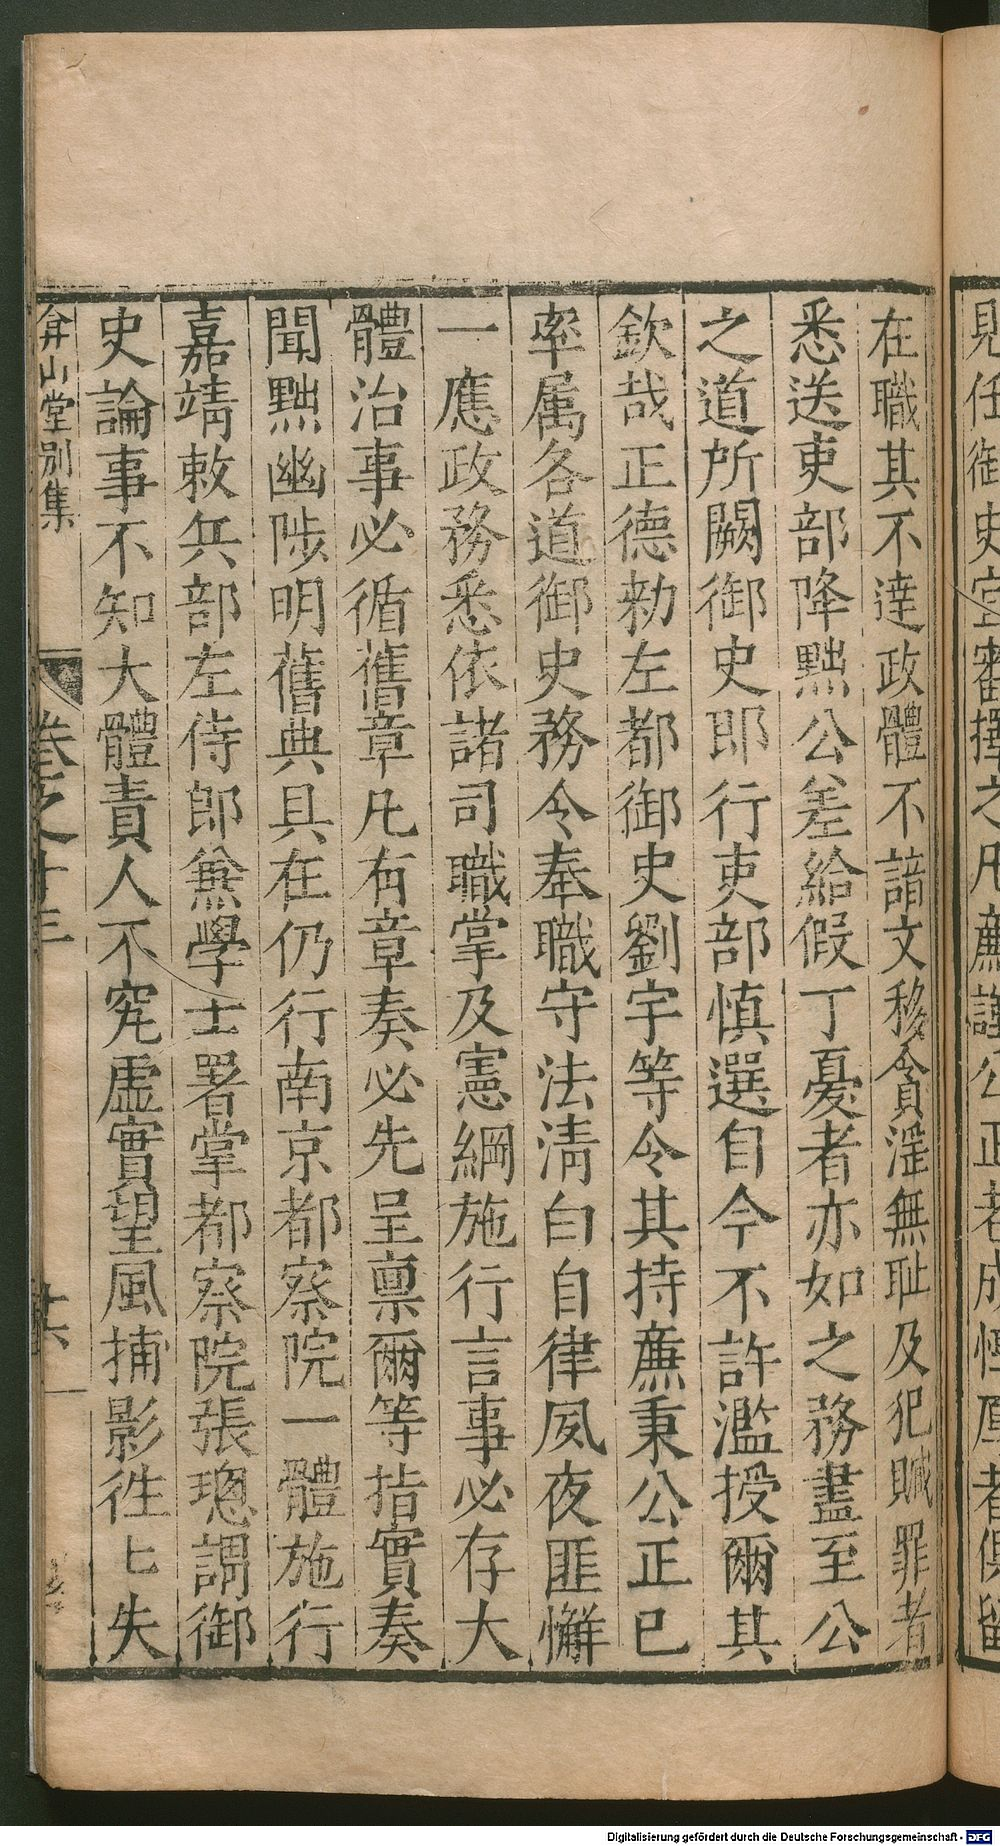 見任御史宜審擇之凡廉謹公正老成惇厚者俱留
在職其不達政體不諳文移貪淫無耻及犯贓罪者
悉送吏部降黜公差給假丁憂者亦如之務盡至公
之道所闕御史即行吏部慎選自今不許濫授爾其
欽哉正德勑左都御史劉宇等令其持廉秉公正已
率属各道御史務令奉職守法淸白自律夙夜匪懈
一應政務悉依諸司職掌及憲綱施行言事必存大
體治事必循舊章凡有章奏必先呈禀爾等指實奏
聞黜幽陟明舊典具在仍行南京都察院一體施行
嘉靖敕兵部左侍郎兼學士署掌都察院張璁謂御
史論事不知大體責人不究虛實望風捕影徃匕失
弇山堂别集
卷之十三
十六
Digitalisierung gefördert durch die Deutsche Forschungsgemeinschaft - DFG